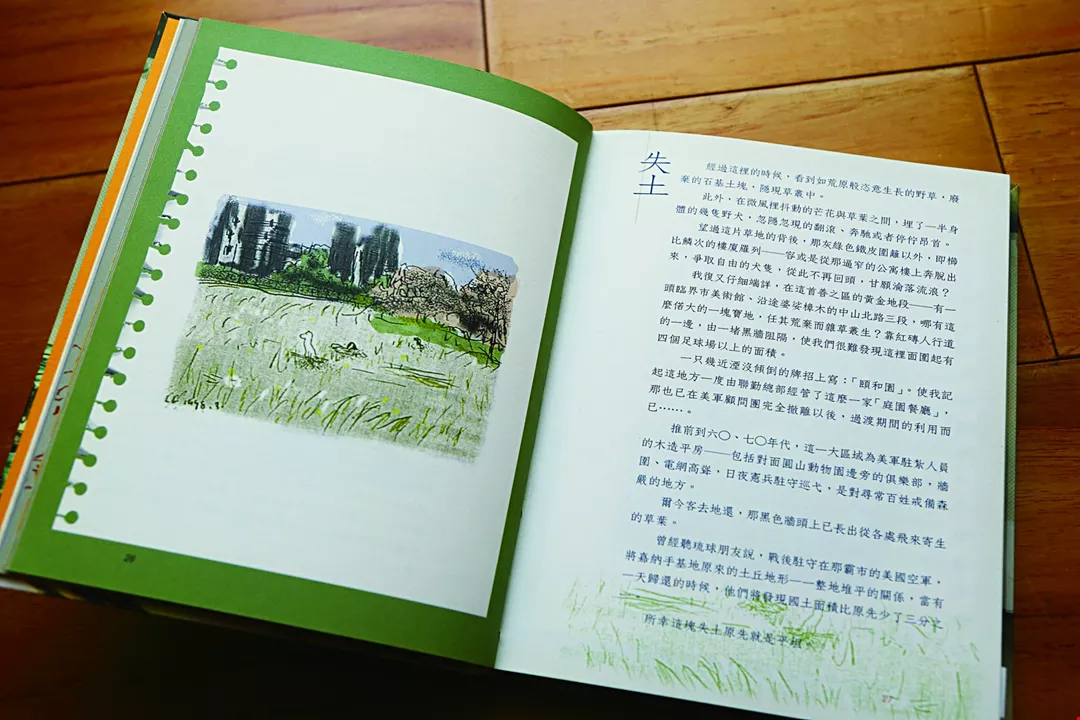 失土
經過這裡的時候，看到如荒原般恣意生長的野草，廢
棄的石基土塊，隱現草叢中。
此外，在微風裡抖動的芒花與草葉之間，埋了一半身
體的幾隻野犬，忽隱忽現的翻滾、奔馳或者停佇昂首。
望過這片草地的背後，那灰綠色鐵皮圍籬以外，即櫛
比鱗次的樓廈羅列——容或是從那逼窄的公寓樓上奔脫出
來，爭取自由的犬隻，從此不再回頭，甘願淪落流浪？
我復又仔細端詳，在這首善之區的黃金地段——有一
頭臨界市美術館、沿途婆娑樟木的中山北路三段，哪有這
麼偌大的一塊寶地，任其荒棄而雜草叢生？靠紅磚人行道
的一邊，由一堵黑牆阻隔，使我們很難發現這裡面圍起有
四個足球場以上的面積。
一只幾近湮沒傾倒的牌招上寫：「頤和園」。使我記
起這地方一度由聯勤總部經管了這麼一家「庭園餐廳」，
那也已在美軍顧問團完全撤離以後，過渡期間的利用而
已……。
推前到六〇、七〇年代，這一大區域為美軍駐紮人員
的木造平房——包括對面圓山動物園邊旁的俱樂部，牆
圍、電網高聳，日夜憲兵駐守巡弋，是對尋常百姓戒備森
嚴的地方。
爾今客去地還，那黑色牆頭上已長出從各處飛來寄生
的草葉。
曾經聽琉球朋友說，戰後駐守在那霸市的美國空軍，
將嘉納手基地原來的土丘地形——整地堆平的關係，當有
一天歸還的時候，他們將發現國土面積比原先少了三分之
所幸這塊失土原先就是平坦
26
27